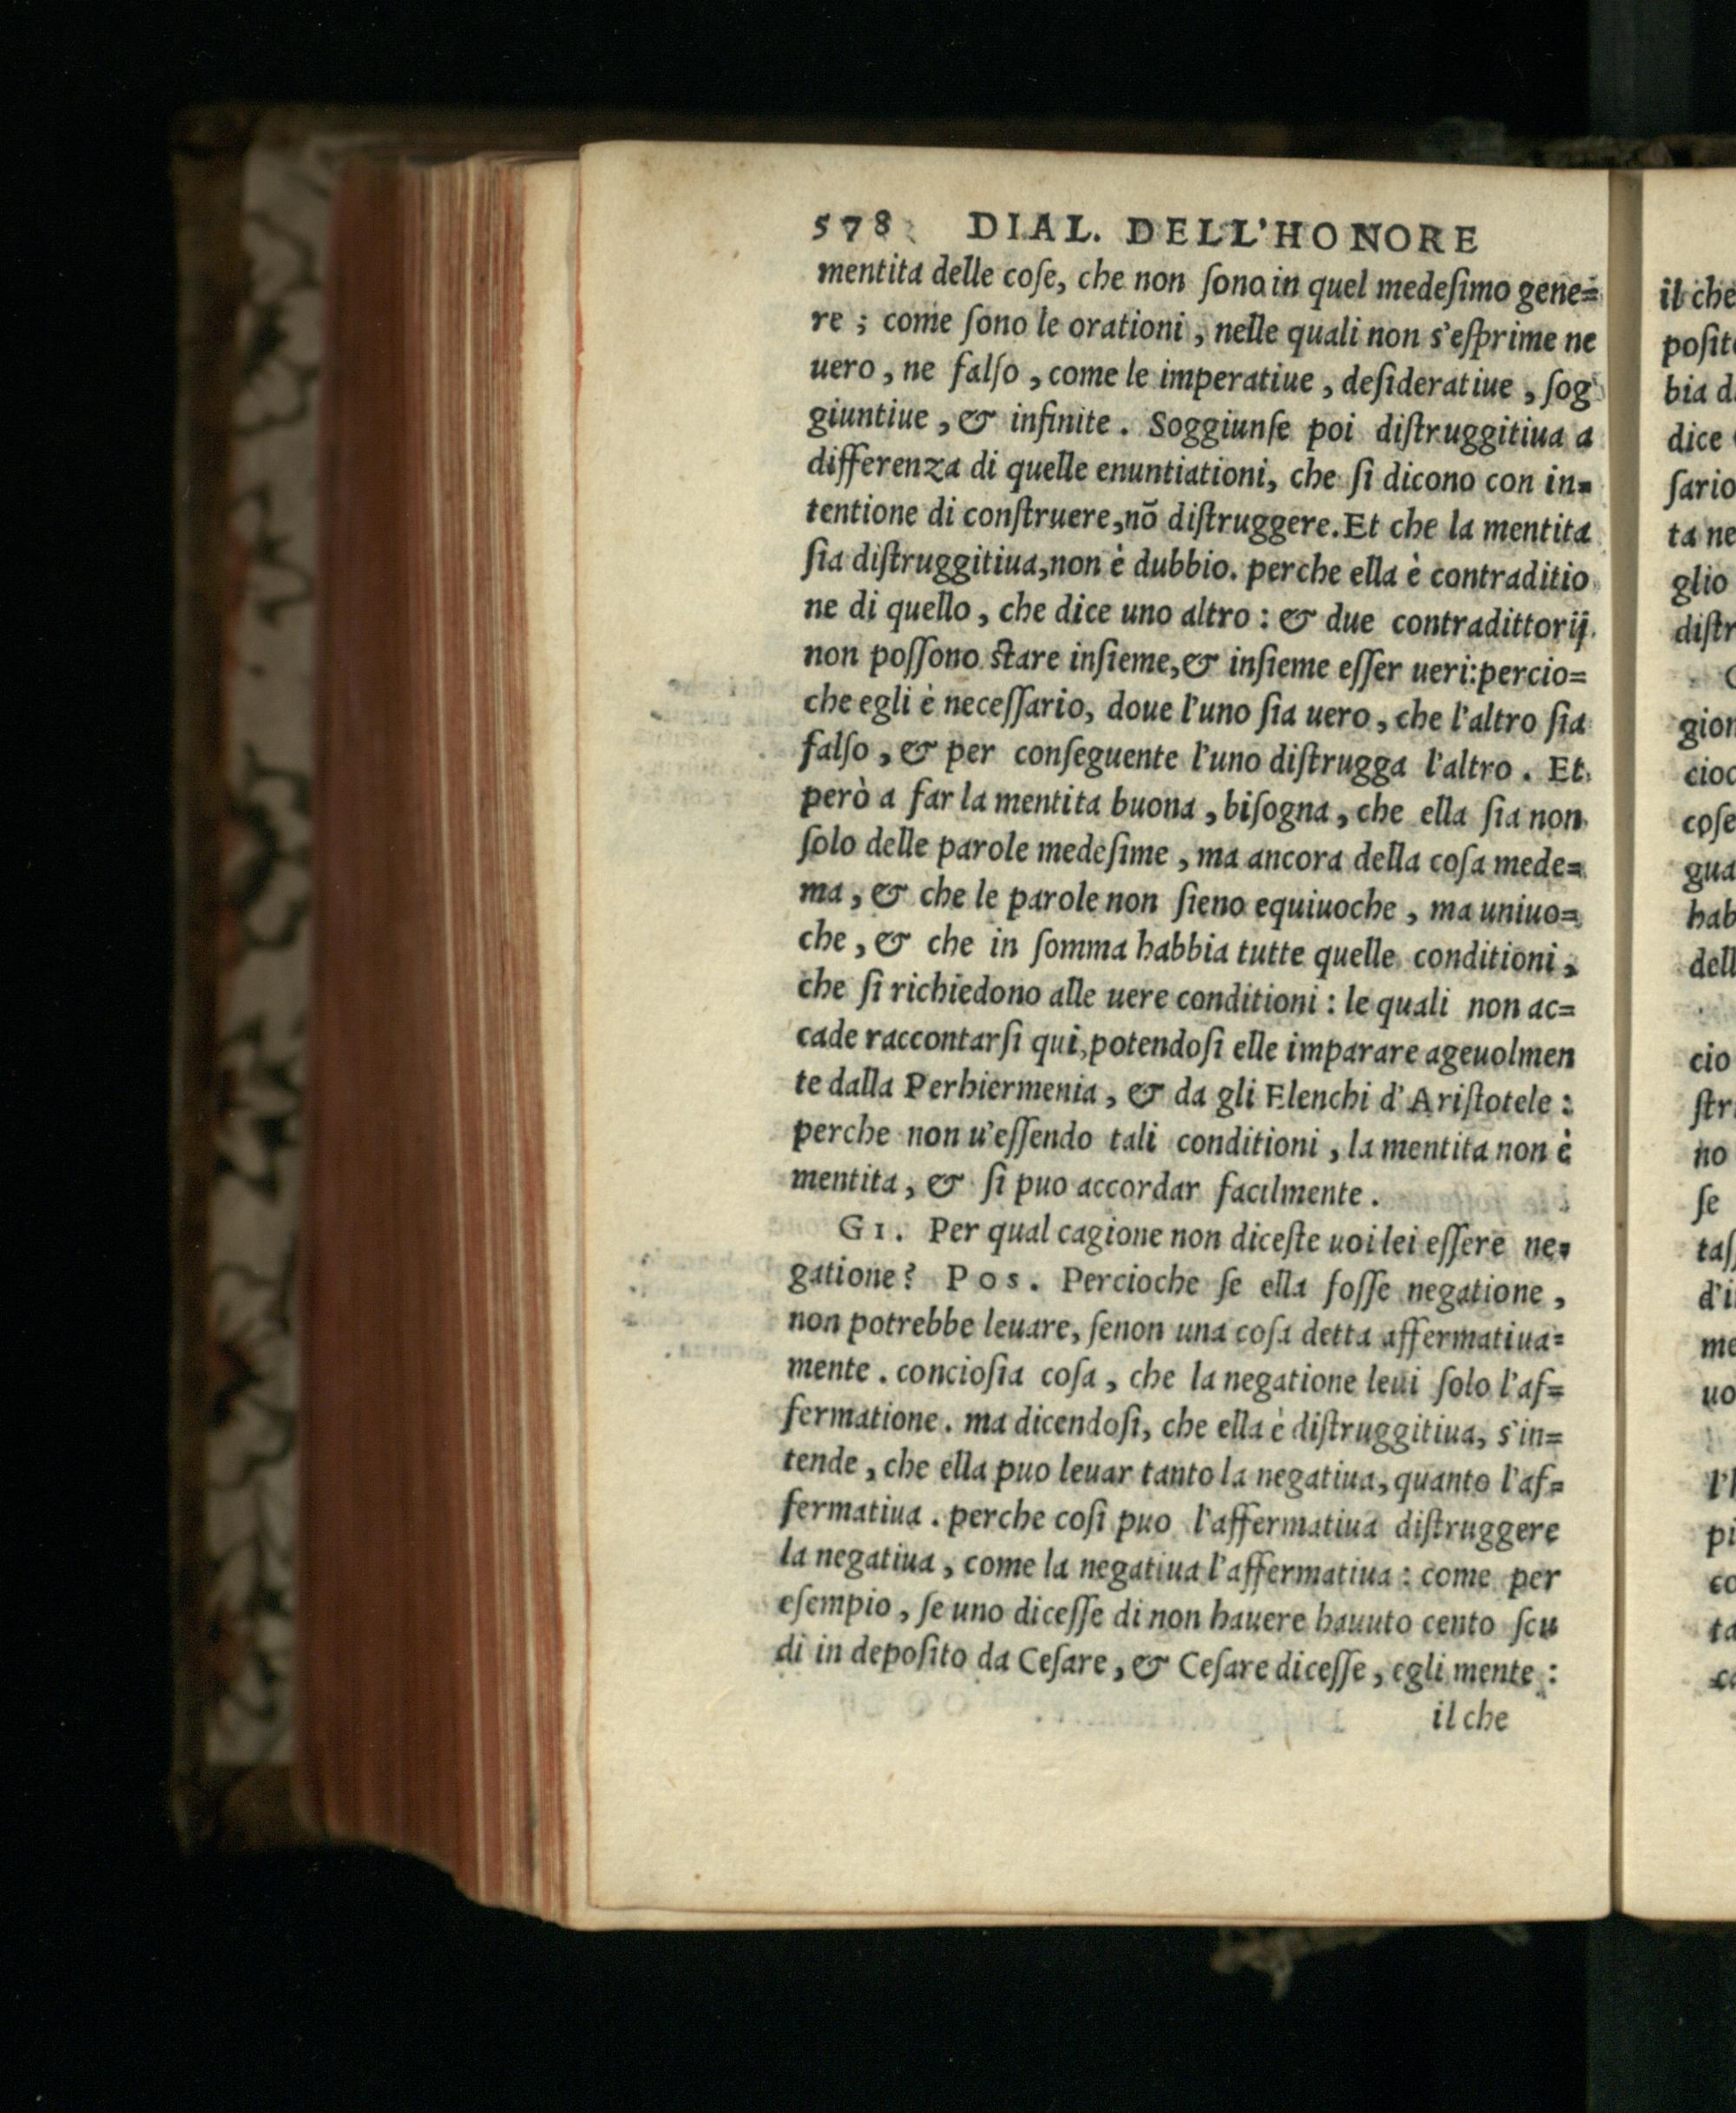 578 DIAL. DELL'HONORE
mentita delle coſe, che non ſono in quel medeſimo gene=
re ; come ſono le orationi, nelle quali non s'eſprime ne
uero, ne falſo, come le imperatiue, deſideratiue, ſog
giuntiue, & infinite. Soggiunſe poi diſtruggitiua a
differenza di quelle enuntiationi, che ſi dicono con in=
tentione di conſtruere, nō diſtruggere. Et che la mentita
ſia diſtruggitiua, non è dubbio. perche ella è contraditio
ne di quello, che dice uno altro : & due contradittorij
non poſſono ſtare inſieme, & inſieme eſſer ueri: percio=
che egli è neceſſario, doue l'uno ſia uero, che l'altro ſia
falſo, & per conſeguente l'uno diſtrugga l'altro. Et
però a far la mentita buona, biſogna, che ella ſia non
ſolo delle parole medeſime, ma ancora della coſa mede=
ma, & che le parole non ſieno equiuoche, ma uniuo=
che, & che in ſomma habbia tutte quelle conditioni,
che ſi richiedono alle uere conditioni : le quali non ac=
cade raccontarſi qui, potendoſi elle imparare ageuolmen
te dalla Perhiermenia, & da gli Elenchi d'Ariſtotele :
perche non u'eſſendo tali conditioni, la mentita non è
mentita, & ſi puo accordar facilmente.
GI. Per qual cagione non diceſte uoi lei eſſere ne=
gatione? Pos. Percioche ſe ella foſſe negatione,
non potrebbe leuare, ſenon una coſa detta affermatiua=
mente. concioſia coſa, che la negatione leui ſolo l'af=
fermatione. ma dicendoſi, che ella è diſtruggitiua, s'in=
tende, che ella puo leuar tanto la negatiua, quanto l'af=
fermatiua. perche coſi puo l'affermatiua diſtruggere
la negatiua, come la negatiua l'affermatiua : come per
eſempio, ſe uno diceſſe di non hauere hauuto cento ſcu
di in depoſito da Ceſare, & Ceſare diceſſe, egli mente :
il che
il che
poſit
bia d
dice
ſario
ta ne
glio
diſtr
gion
cioc
coſe
gua
hab
dell
cio
ſtr
no
ſe
taſ
d'i
me
uo
l'h
pi
co
ta